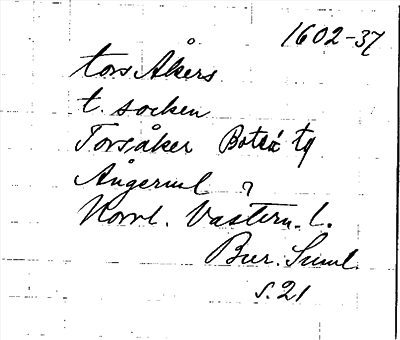 1602-37
tors Åkers
t. socken
Torsåker Boteå tg
Ångerml
Korrl. Västern. l.
Bur. Suml.
s. 21